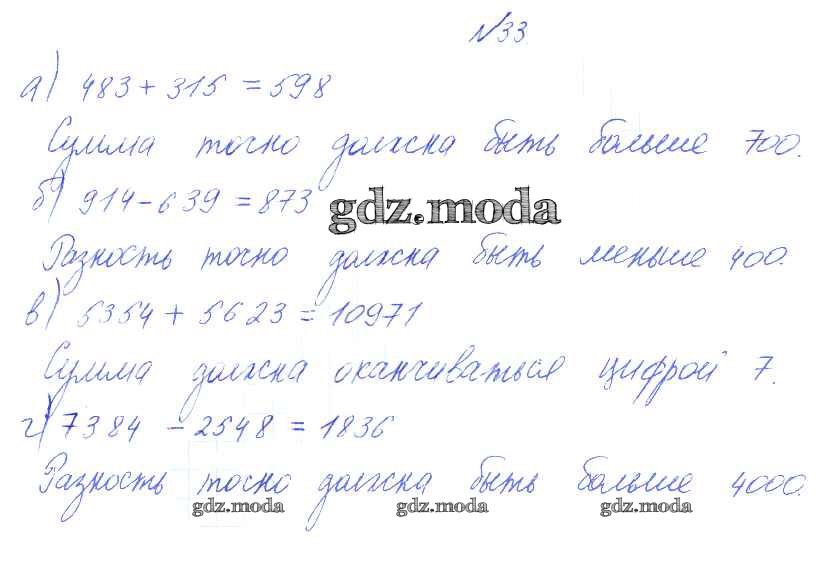 №33
а) 483 + 315 = 598
Сумма точно должна быть больше 700.
б) 914 - 639 = 873
gdz.moda
Разность точно должна быть меньше 400.
в) 5354 + 5623 = 10971
Сумма должна оканчиваться цифрой 7.
г) 7384 - 2548 = 1836
Разность точно должна быть больше 4000.
gdz.moda gdz.moda gdz.moda